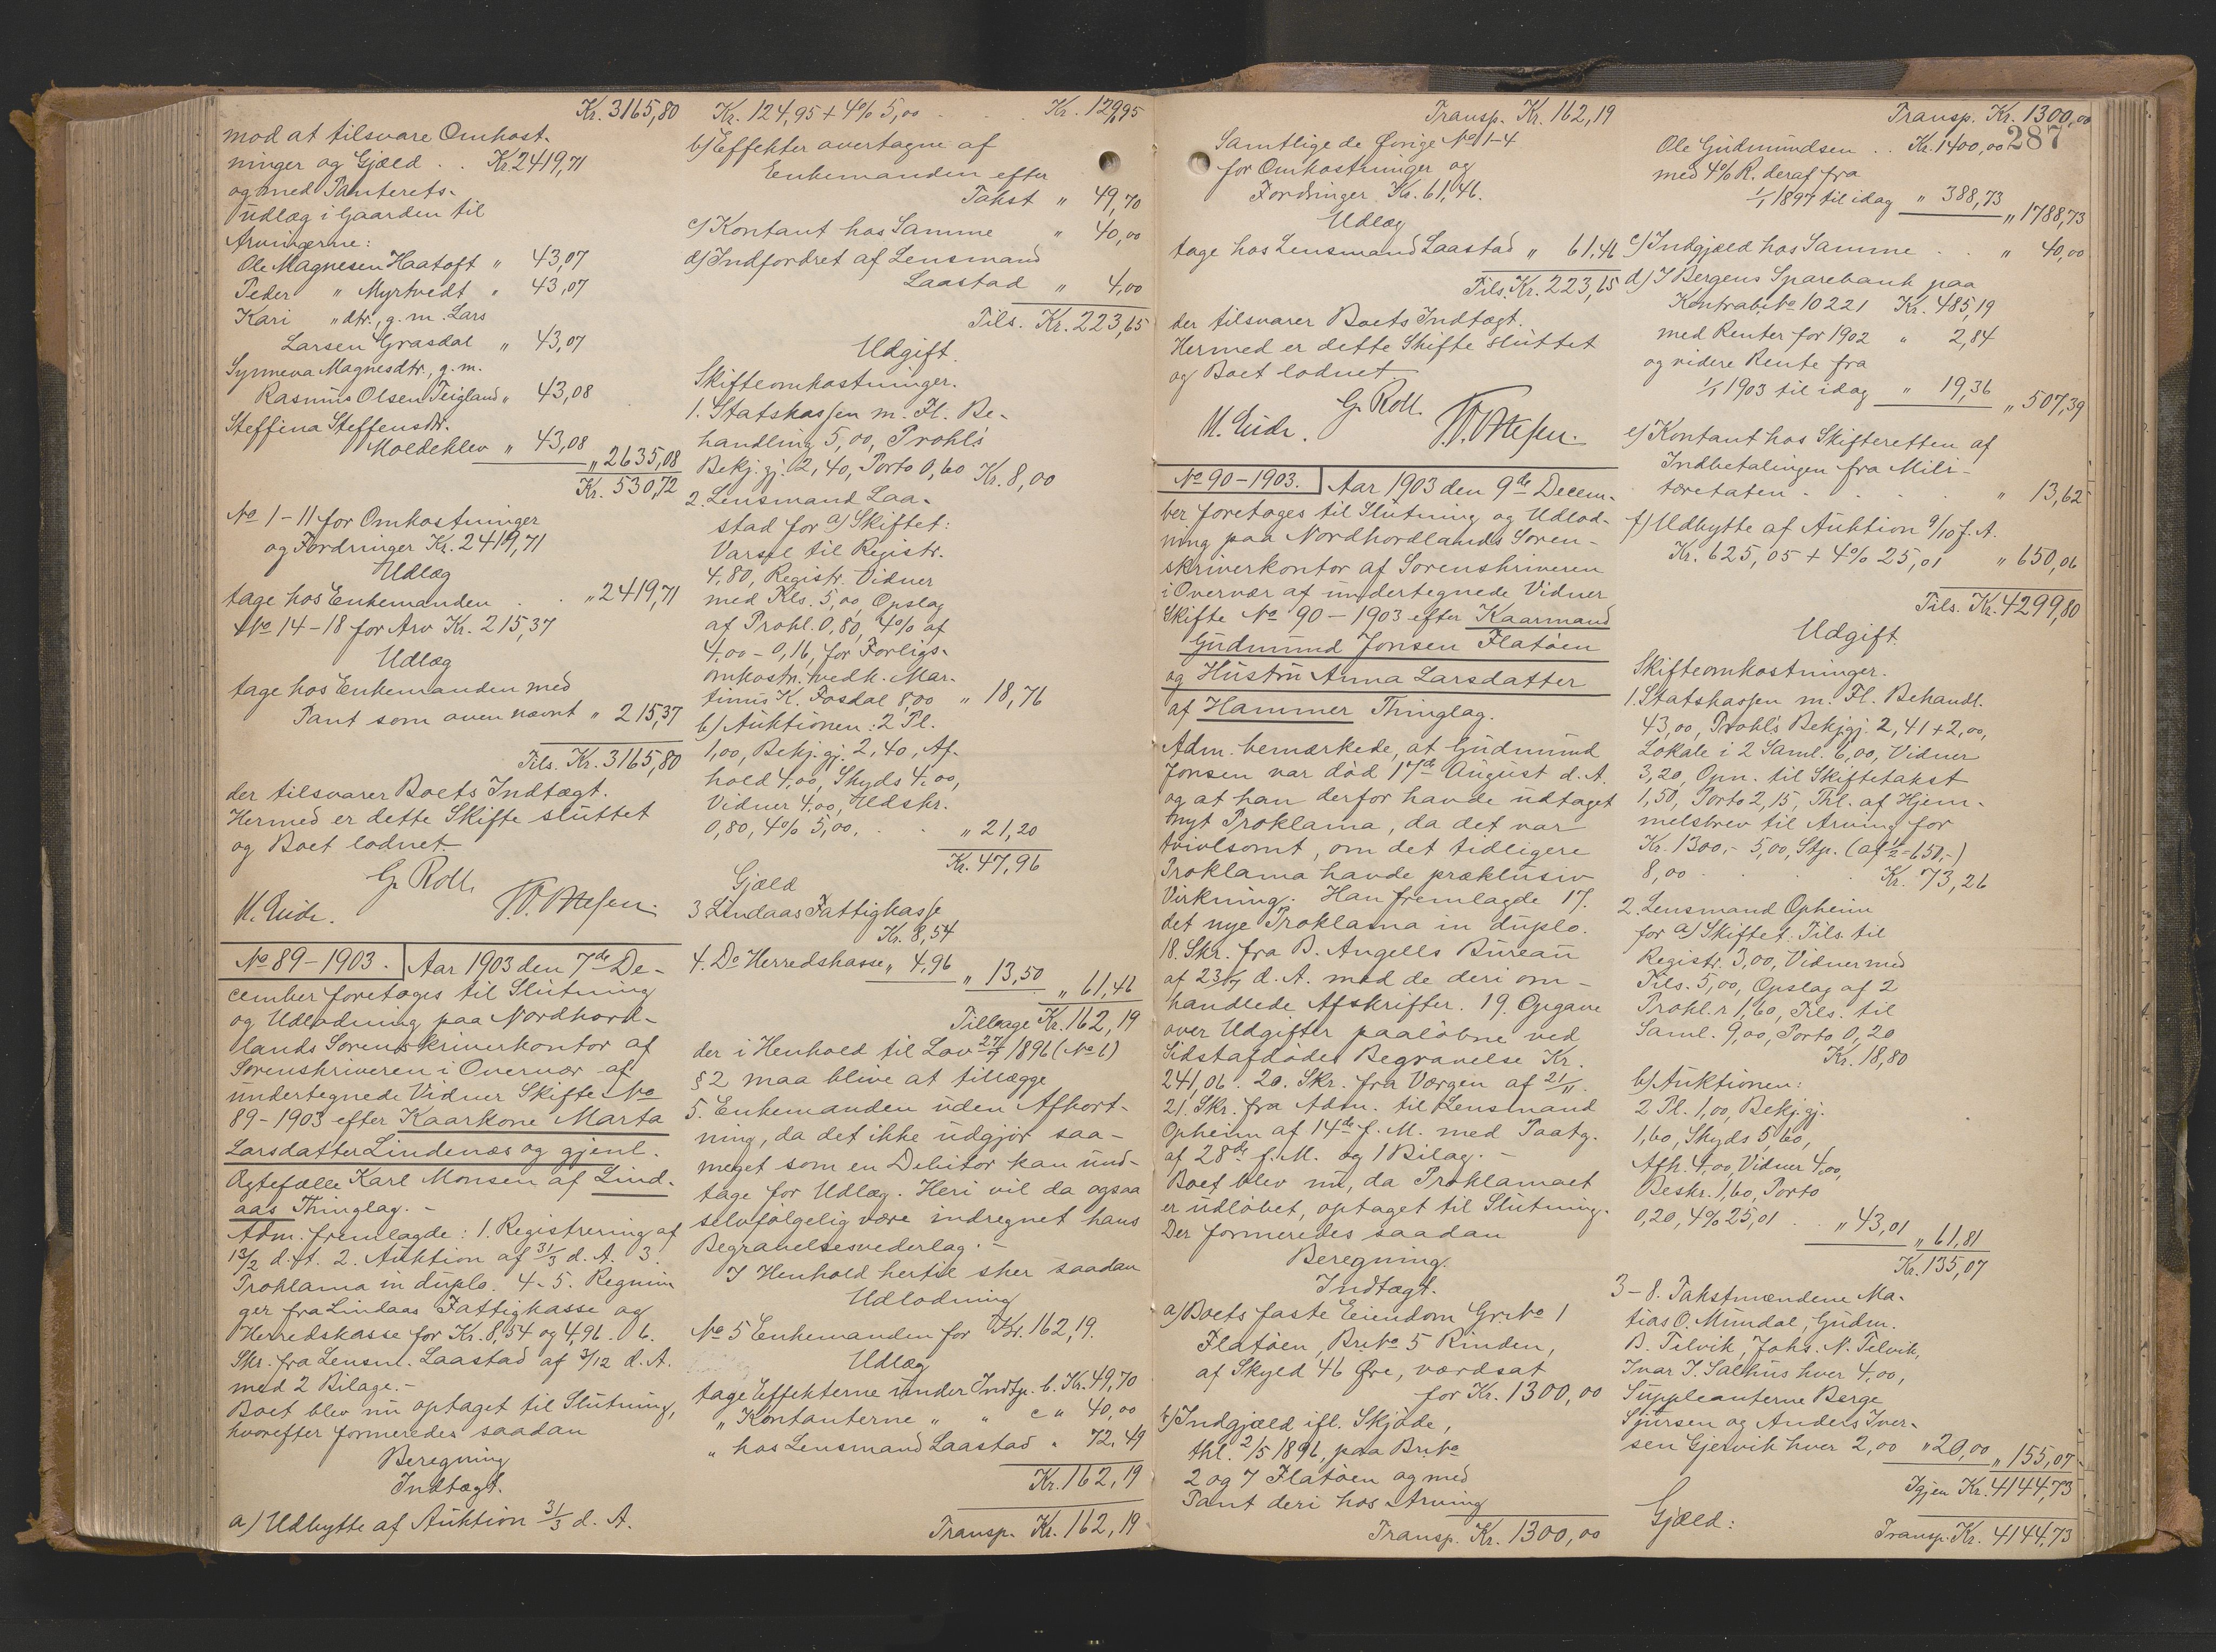 Kr. 3165,80
mod at tilsvare Omkost-
ninger og Gjæld . . Kr. 2419,71
og med Panterets-
udlæg i Gaarden til
Arvingerne:
Ole Magnesen Haatoft " 43,07
Peder " Myrtvedt " 43,07
Kari " dtr., g. m. Lars
Larsen Grasdal " 43,07
Synneva Magnesdtr., g. m.
Rasmus Olsen Teigland " 43,08
Steffina Steffensdtr.
Moldeklev " 43,08
" 2635,08
Kr. 530,72
No 1-11 for Omkostninger
og Fordringer Kr. 2419,71
Udlæg
tage hos Enkemanden . . " 2419,71
No 14-18 for Arv Kr. 215,37
Udlæg
tage hos Enkemanden med
Pant som oven nævnt " 215,37
Tils. Kr. 3165,80
der tilsvarer Boets Indtægt.
Hermed er dette Skifte sluttet
og Boet lodnet.
G. Roll.
M. Eide.
No 89-1903. Aar 1903 den 7de De-
cember foretoges til Slutning
og Udlodning paa Nordhord-
lands Sorenskriverkontor af
Sorenskriveren i Overvær af
undertegnede Vidner Skifte No
89-1903 efter Kaarkone Marta
Larsdatter Lindenæs og gjenl.
Ægtefælle Karl Monsen af Lind-
aas Thinglag. -
Adm. fremlagde: 1. Registrering af
13/2 d. A. 2. Auktion af 31/3 d. A. 3.
Proklama in duplo. 4-5. Regnin
ger fra Lindaas Fattigkasse og
Herredskasse for Kr. 8,54 og 4,96. 6.
Skr. fra Lensm. Laastad af 3/12 d. A.
med 2 Bilage. -
Boet blev nu optaget til Slutning,
hvorefter formeredes saadan
Beregning
Indtægt.
a) Udbytte af Auktion 31/3 d. A.
Kr. 124,95 + 4% 5,00 . . Kr. 129,95
b) Effekter overtagne af
Enkemanden efter
Takst " 49,70
c) Kontant hos Samme " 40,00
d) Indfordret af Lensmand
Laastad " 4,00
Tils. Kr. 223,65
Udgift.
Skifteomkostninger.
1. Statskassen m. Fl. Be-
handling 5,00, Prokl's
Bekj. gj. 2,40, Porto 0,60 Kr. 8,00
2. Lensmand Laa-
stad for a) Skiftet:
Varsel til Registr.
4,80, Registr. Vidner
med Kls. 5,00, Opslag
af Prokl. 0,80, 4% af
4,00 - 0,16, for Forligs-
omkostn. vedk. Mar-
tinus K. Fosdal 8,00 " 18,76
b) Auktionen: 2 Pl.
1,00, Bekj. gj. 2,40, Af-
hold 4,00, Skyds 4,00,
Vidner 4,00, Udskr.
0,80, 4% 5,00. . . " 21,20
Kr. 47,96
Gjæld
3 Lindaas Fattigkasse
Kr. 8,54
4. Do Herredskasse " 4,96 " 13,50 " 61,46
Tilbage Kr. 162,19
der i Henhold til Lov 27/7 1896 (No 6)
§ 2 maa blive at tillægge
5. Enkemanden uden Afkort-
ning, da det ikke udgjør saa-
meget som en Debitor kan und-
tage for Udlæg. Heri vil da ogsaa
selvfølgelig være indregnet hans
Begravelsesvederlag. -
I Henhold hertil sker saadan
Udlodning
No 5 Enkemanden for Kr. 162,19.
Udlæg
tage Effekterne under Indtg. b. Kr. 49,70
" Kontanterne " " c " 40,00
" hos Lensmand Laastad " 72,49
Kr. 162,19
Transp. Kr. 162,19
Transp. Kr. 162,19
Samtlige de Øvrige No 1-4
for Omkostninger og
Fordringer Kr. 61,46.
Udlæg
tage hos Lensmand Laastad " 61,46
Tils. Kr. 223,65
der tilsvarer Boets Indtægt.
Hermed er dette Skifte sluttet
og Boet lodnet
G. Roll.
M. Eide.
No 90-1903. Aar 1903 den 9de Decem-
ber foretoges til Slutning og Udlod-
ning paa Nordhordlands Soren-
skriverkontor af Sorenskriveren
i Overvær af undertegnede Vidner
Skifte No 90-1903 efter Kaarmand
Gudmund Jonsen Flatøen
og Hustru Anna Larsdatter
af Hammer Thinglag.
Adm. bemærkede, at Gudmund
Jonsen var død 17de August d. A.
og at han derfor havde udtaget
nyt Proklama, da det var
tvivlsomt, om det tidligere
Proklama havde præklusiv
Virkning. Han fremlagde 17.
det nye Proklama in duplo.
18. Skr. fra B. Angells Bureau
af 23/9 d. A. med de deri om-
handlede Afskrifter. 19. Opgave
over Udgifter paaløbne ved
Sidstafdødes Begravelse Kr.
241,06. 20. Skr. fra Værgen af 21/11.
21. Skr. fra Adm. til Lensmand
Opheim af 14de f. M. med Paatg.
af 28de f. M. og 1 Bilag. -
Boet blev nu, da Proklamaet
er udløbet, optaget til Slutning.
Der formeredes saadan
Beregning.
Indtægt.
a) Boets faste Eiendom Gr. No 1
Flatøen, Br. No 5 Rinden,
af Skyld 46 Øre, værdsat
for Kr. 1300,00
b) Indgjæld ifl. Skjøde,
thl. 2/5 1896, paa Br. No
2 og 7 Flatøen og med
Pant deri hos Arving
Transp. Kr. 1300,00
Transp. Kr. 1300,00
287
Ole Gudmundsen . . Kr. 1400,00
med 4% R. deraf fra
1/1 1897 til idag " 388,73
" 1788,73
c) Indgjæld hos Samme . . " 40,00
d) I Bergens Sparebank paa
Kontrab. No 10221 Kr. 485,19
med Renter for 1902 " 2,84
og videre Rente fra
1/1 1903 til idag " 19,36
" 507,39
e) Kontant hos Skifteretten af
Indbetalingen fra Mili-
tæretaten . . . " 13,62
f) Udbytte af Auktion 9/10 f. A.
Kr. 625,05 + 4% 25,01 " 650,06
Tils. Kr. 4299,80
Udgift.
Skifteomkostninger.
1. Statskassen m. Fl. Behandl.
43,00, Prokl's Bekj.gj. 2,41 + 2,00,
Lokale i 2 Saml. 6,00, Vidner
3,20, Opn. til Skiftetakst
1,50, Porto 2,15, Thl. af Hjem-
melsbrev til Arving for
Kr. 1300,- 5,00, Stp. (af 1/2 = 650,-)
8,00 . . Kr. 73,26
2. Lensmand Opheim
for a) Skiftet. Tils. til
Registr. 3,00, Vidner med
Tils. 5,00, Opslag af 2
Prokl.r 1,60, Tils. til
Saml. 9,00, Porto 0,20
Kr. 18,80
b) Auktionen:
2 Pl. 1,00, Bekj.gj.
1,60, Skyds 5,60,
Afh. 4,00, Vidner 4,00,
Beskr. 1,60, Porto
0,20, 4% 25,01 . . " 43,01 " 61,81
Kr. 135,07
3-8. Takstmændene Ma-
tias O. Mundal, Gudm.
B. Telvik, Johs. N. Telvik,
Ivar I. Salhus hver 4,00,
Suppleanterne Berge
Sjursen og Anders Iver-
sen Gjervik hver 2,00 " 20,00 " 155,07
Igjen Kr. 4144,73
Gjæld:
Transp. Kr. 4144,73